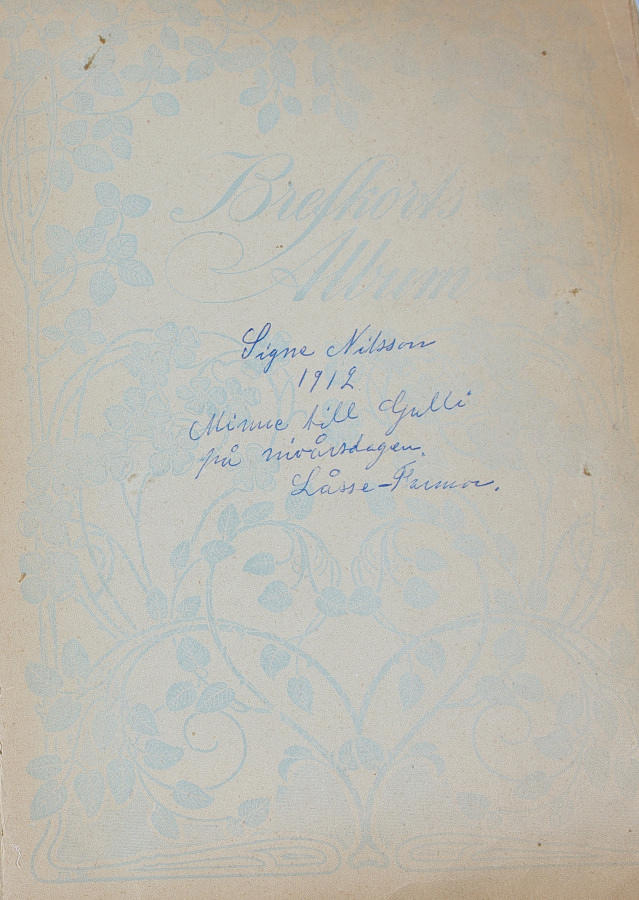 Brefkorts
Album
Signe Nilsson
1912
Minne till Gulli
på nioårsdagen.
Låsse-Farmor.